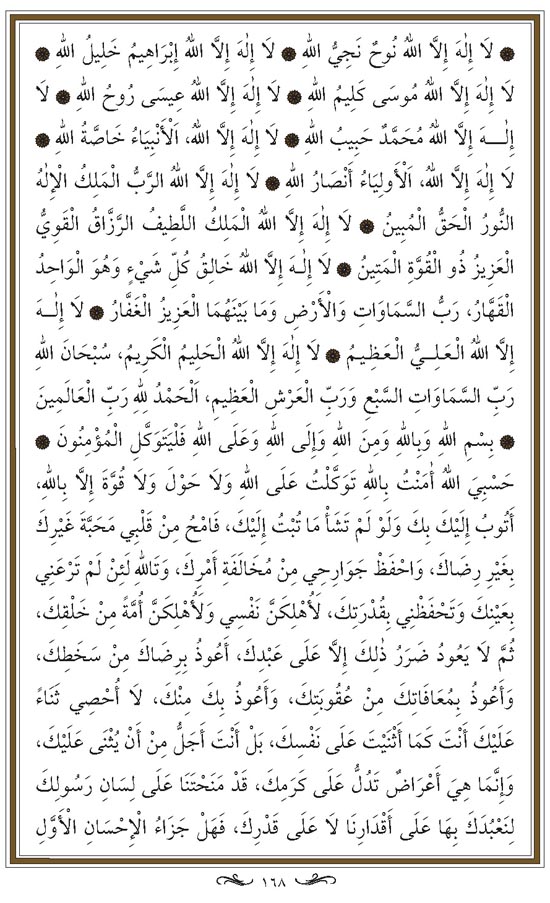 لَا إِلٰهَ إِلَّا اللهُ نُوحٌ نَجِيُّ اللهِ ۞ لَا إِلٰهَ إِلَّا اللهُ إِبْرَاهِيمُ خَلِيلُ اللهِ ۞
لَا إِلٰهَ إِلَّا اللهُ مُوسَى كَلِيمُ اللهِ ۞ لَا إِلٰهَ إِلَّا اللهُ عِيسَى رُوحُ اللهِ ۞ لَا
إِلٰـهَ إِلَّا اللهُ مُحَمَّدٌ حَبِيبُ اللهِ ۞ لَا إِلٰهَ إِلَّا اللهُ، اَلْأَنْبِيَاءُ خَاصَّةُ اللهِ ۞
لَا إِلٰهَ إِلَّا اللهُ، اَلْأَوْلِيَاءُ أَنْصَارُ اللهِ ۞ لَا إِلٰهَ إِلَّا اللهُ الرَّبُّ الْمَلِكُ الْإِلٰهُ
النُّورُ الْحَقُّ الْمُبِينُ ۞ لَا إِلٰهَ إِلَّا اللهُ الْمَلِكُ اللَّطِيفُ الرَّزَّاقُ الْقَوِيُّ
الْعَزِيزُ ذُو الْقُوَّةِ الْمَتِينُ ۞ لَا إِلٰـهَ إِلَّا اللهُ خَالِقُ كُلِّ شَيْءٍ وَهُوَ الْوَاحِدُ
الْقَهَّارُ، رَبُّ السَّمَاوَاتِ وَالْأَرْضِ وَمَا بَيْنَهُمَا الْعَزِيزُ الْغَفَّارُ ۞ لَا إِلٰـهَ
إِلَّا اللهُ الْعَلِـيُّ الْعَظِـيمُ ۞ لَا إِلٰهَ إِلَّا اللهُ الْحَلِيمُ الْكَرِيمُ، سُبْحَانَ اللهِ
رَبِّ السَّمَاوَاتِ السَّبْعِ وَرَبِّ الْعَرْشِ الْعَظِيمِ، اَلْحَمْدُ لِلهِ رَبِّ الْعَالَمِينَ
۞ بِسْمِ اللهِ وَبِاللهِ وَمِنَ اللهِ وَإِلَى اللهِ وَعَلَى اللهِ فَلْيَتَوَكَّلِ الْمُؤْمِنُونَ ۞
حَسْبِيَ اللهُ أٰمَنْتُ بِاللهِ تَوَكَّلْتُ عَلَى اللهِ وَلَا حَوْلَ وَلَا قُوَّةَ إِلَّا بِاللهِ،
أَتُوبُ إِلَيْكَ بِكَ وَلَوْ لَمْ تَشَأْ مَا تُبْتُ إِلَيْكَ، فَامْحُ مِنْ قَلْبِي مَحَبَّةَ غَيْرِكَ
بِغَيْرِ رِضَاكَ، وَاحْفَظْ جَوَارِحِي مِنْ مُخَالَفَةِ أَمْرِكَ، وَتَاللهِ لَئِنْ لَمْ تَرْعَنِي
بِعَيْنِكَ وَتَحْفَظْنِي بِقُدْرَتِكَ، لَأُهْلِكَنَّ نَفْسِي وَلَأُهْلِكَنَّ أُمَّةً مِنْ خَلْقِكَ،
ثُمَّ لَا يَعُودُ ضَرَرُ ذٰلِكَ إِلَّا عَلَى عَبْدِكَ، أَعُوذُ بِرِضَاكَ مِنْ سَخَطِكَ،
وَأَعُوذُ بِمُعَافَاتِكَ مِنْ عُقُوبَتِكَ، وَأَعُوذُ بِكَ مِنْكَ، لَا أُحْصِي ثَنَاءً
عَلَيْكَ أَنْتَ كَمَا أَثْنَيْتَ عَلَى نَفْسِكَ، بَلْ أَنْتَ أَجَلُّ مِنْ أَنْ يُثْنَى عَلَيْكَ،
وَإِنَّمَا هِيَ أَعْرَاضٌ تَدُلُّ عَلَى كَرَمِكَ، قَدْ مَنَحْتَنَا عَلَى لِسَانِ رَسُولِكَ
لِنَعْبُدَكَ بِهَا عَلَى أَقْدَارِنَا لَا عَلَى قَدْرِكَ، فَهَلْ جَزَاءُ الْإِحْسَانِ الْأَوَّلِ
١٦٨